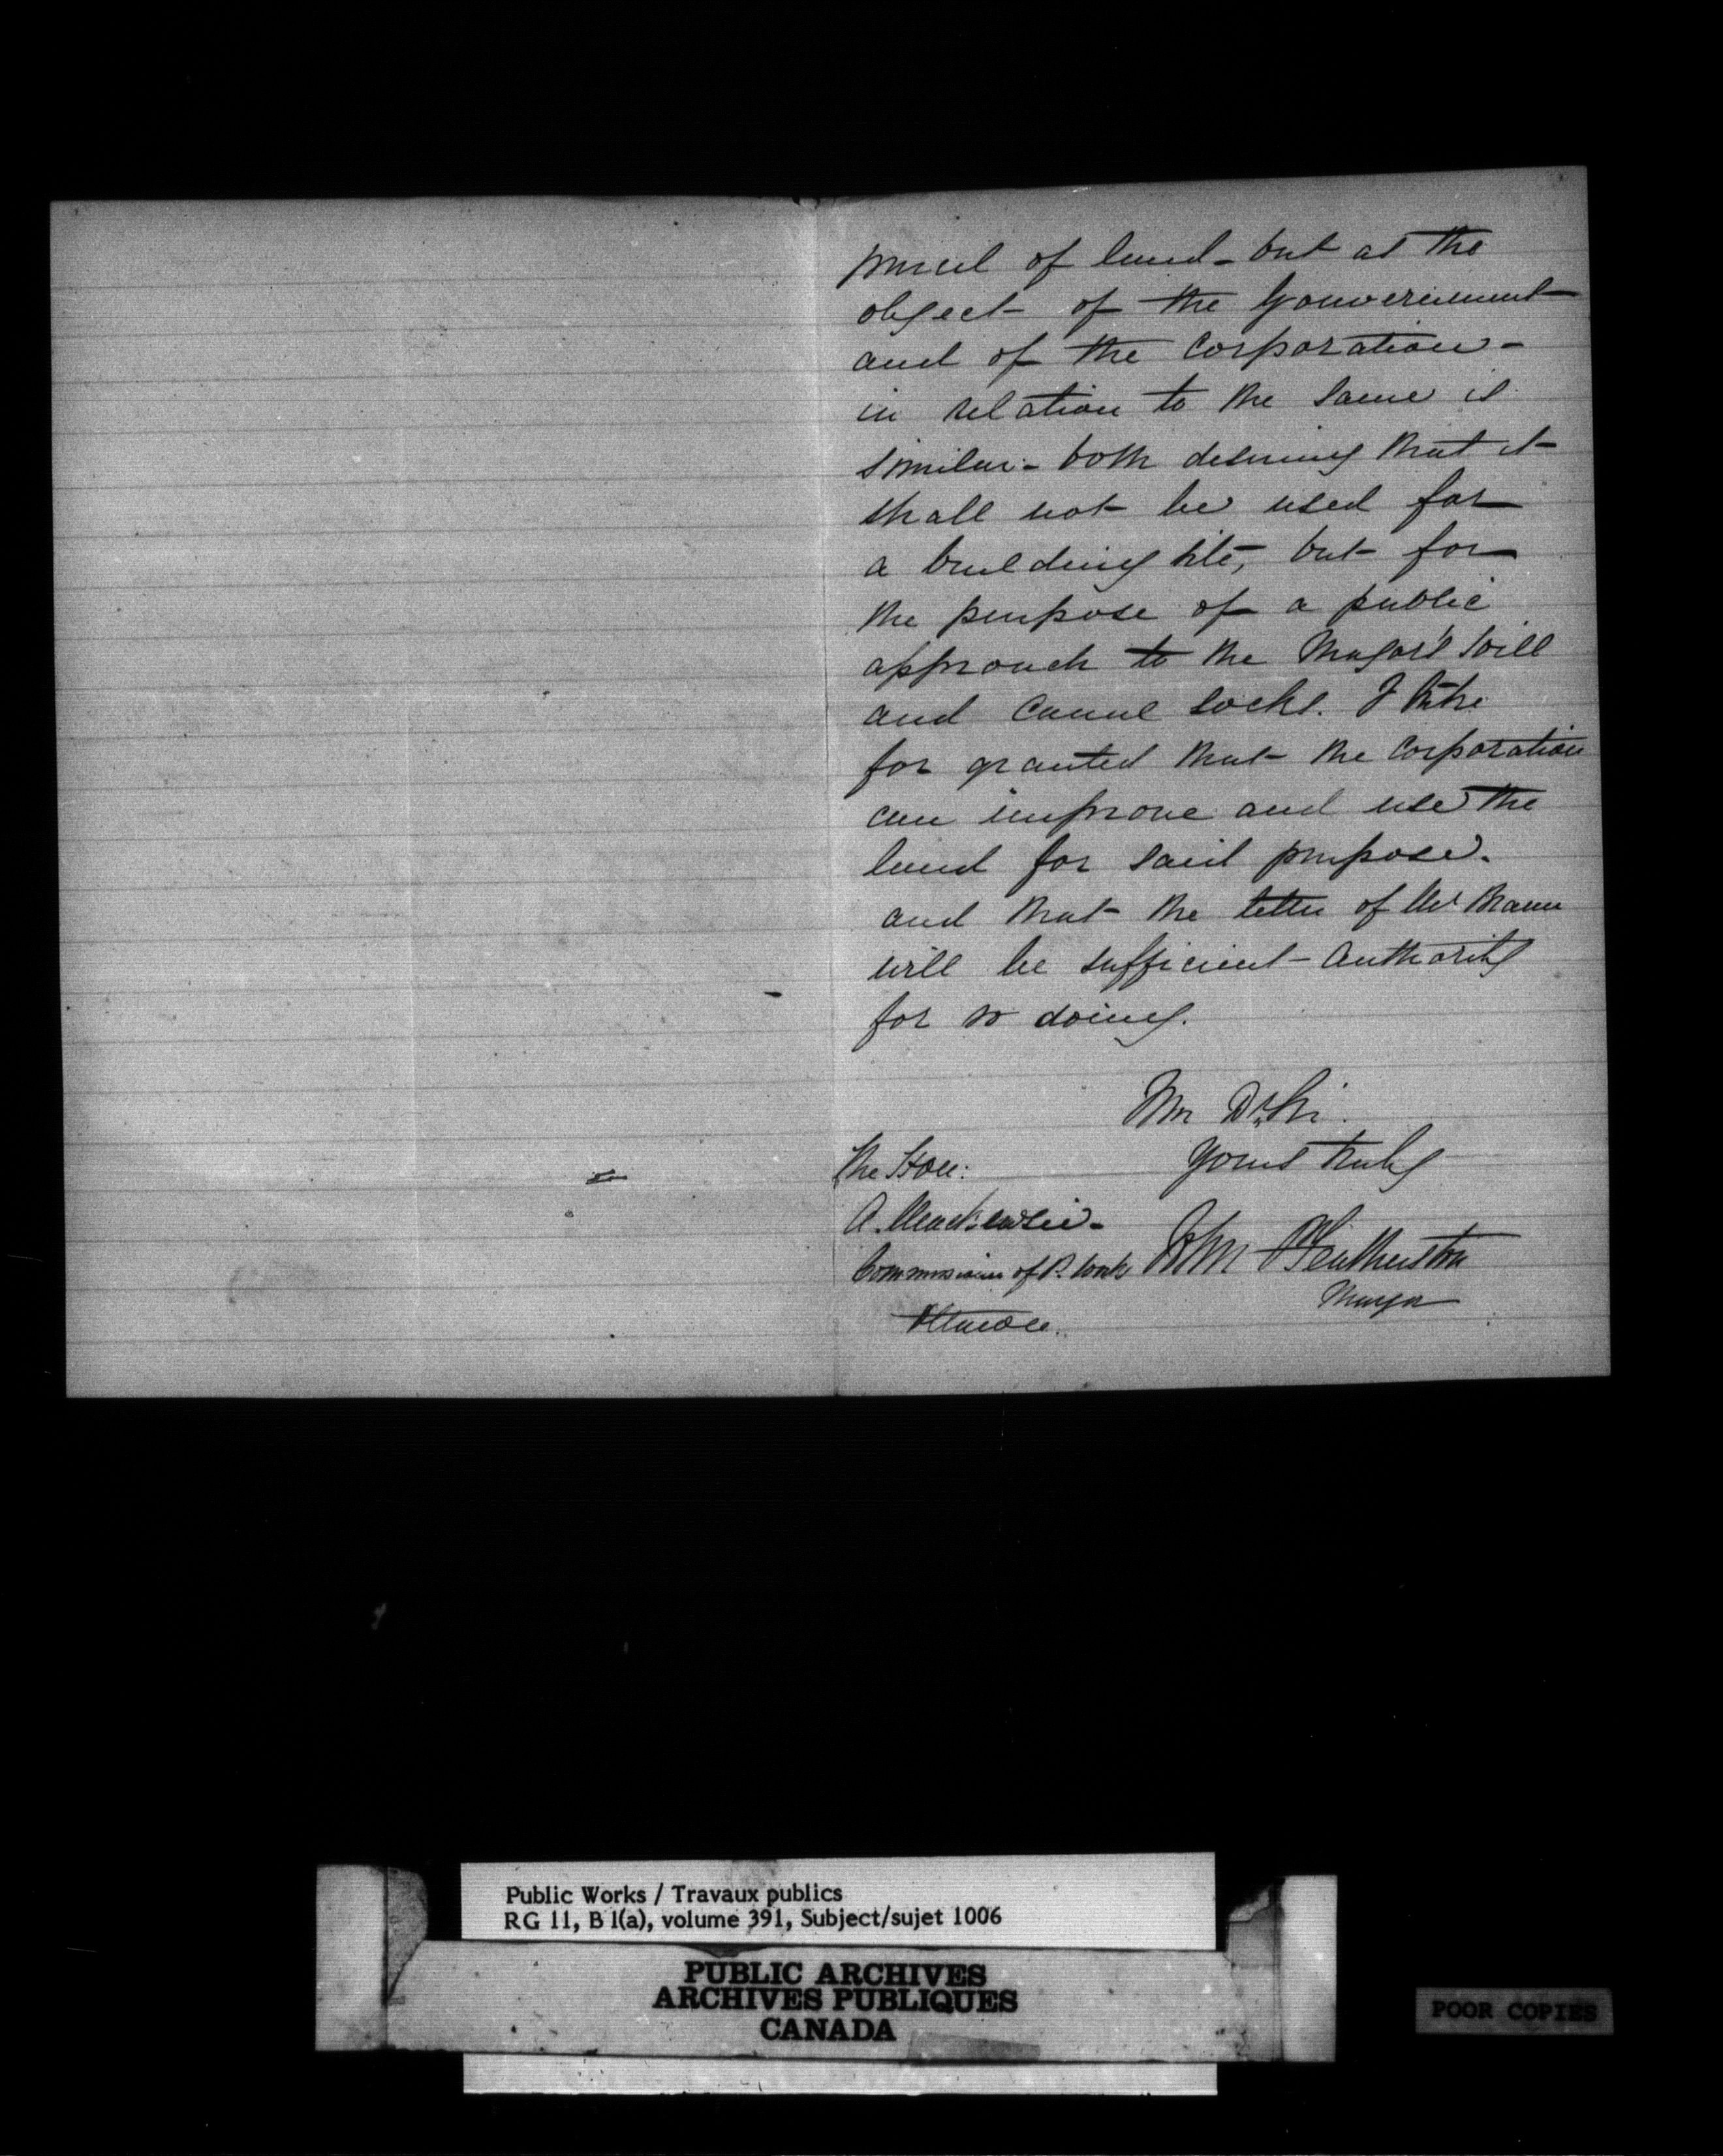 parcel of land - but as the
object - of the Gouverenment
and of the Corporation -
in relation to the same is
similar - both desiring that it
shall not be used for
a building site, but for
the purpose of a public
approach to the Major's Hill
and Canal Locks. I take
for granted that the Corporation
can improve and use the
land for said purpose.
and that the letter of Mr
will be sufficient - authority
for so doing.
Sir
Yours truly
John Featherston
Mayor
The Hon:
A. Mackenzie -
Commissioner of P. Works
Ottawa.
Public Works / Travaux publics
RG 11, B 1(a), volume 391, Subject/sujet 1006
PUBLIC ARCHIVES
ARCHIVES PUBLIQUES
CANADA
POOR COPIES